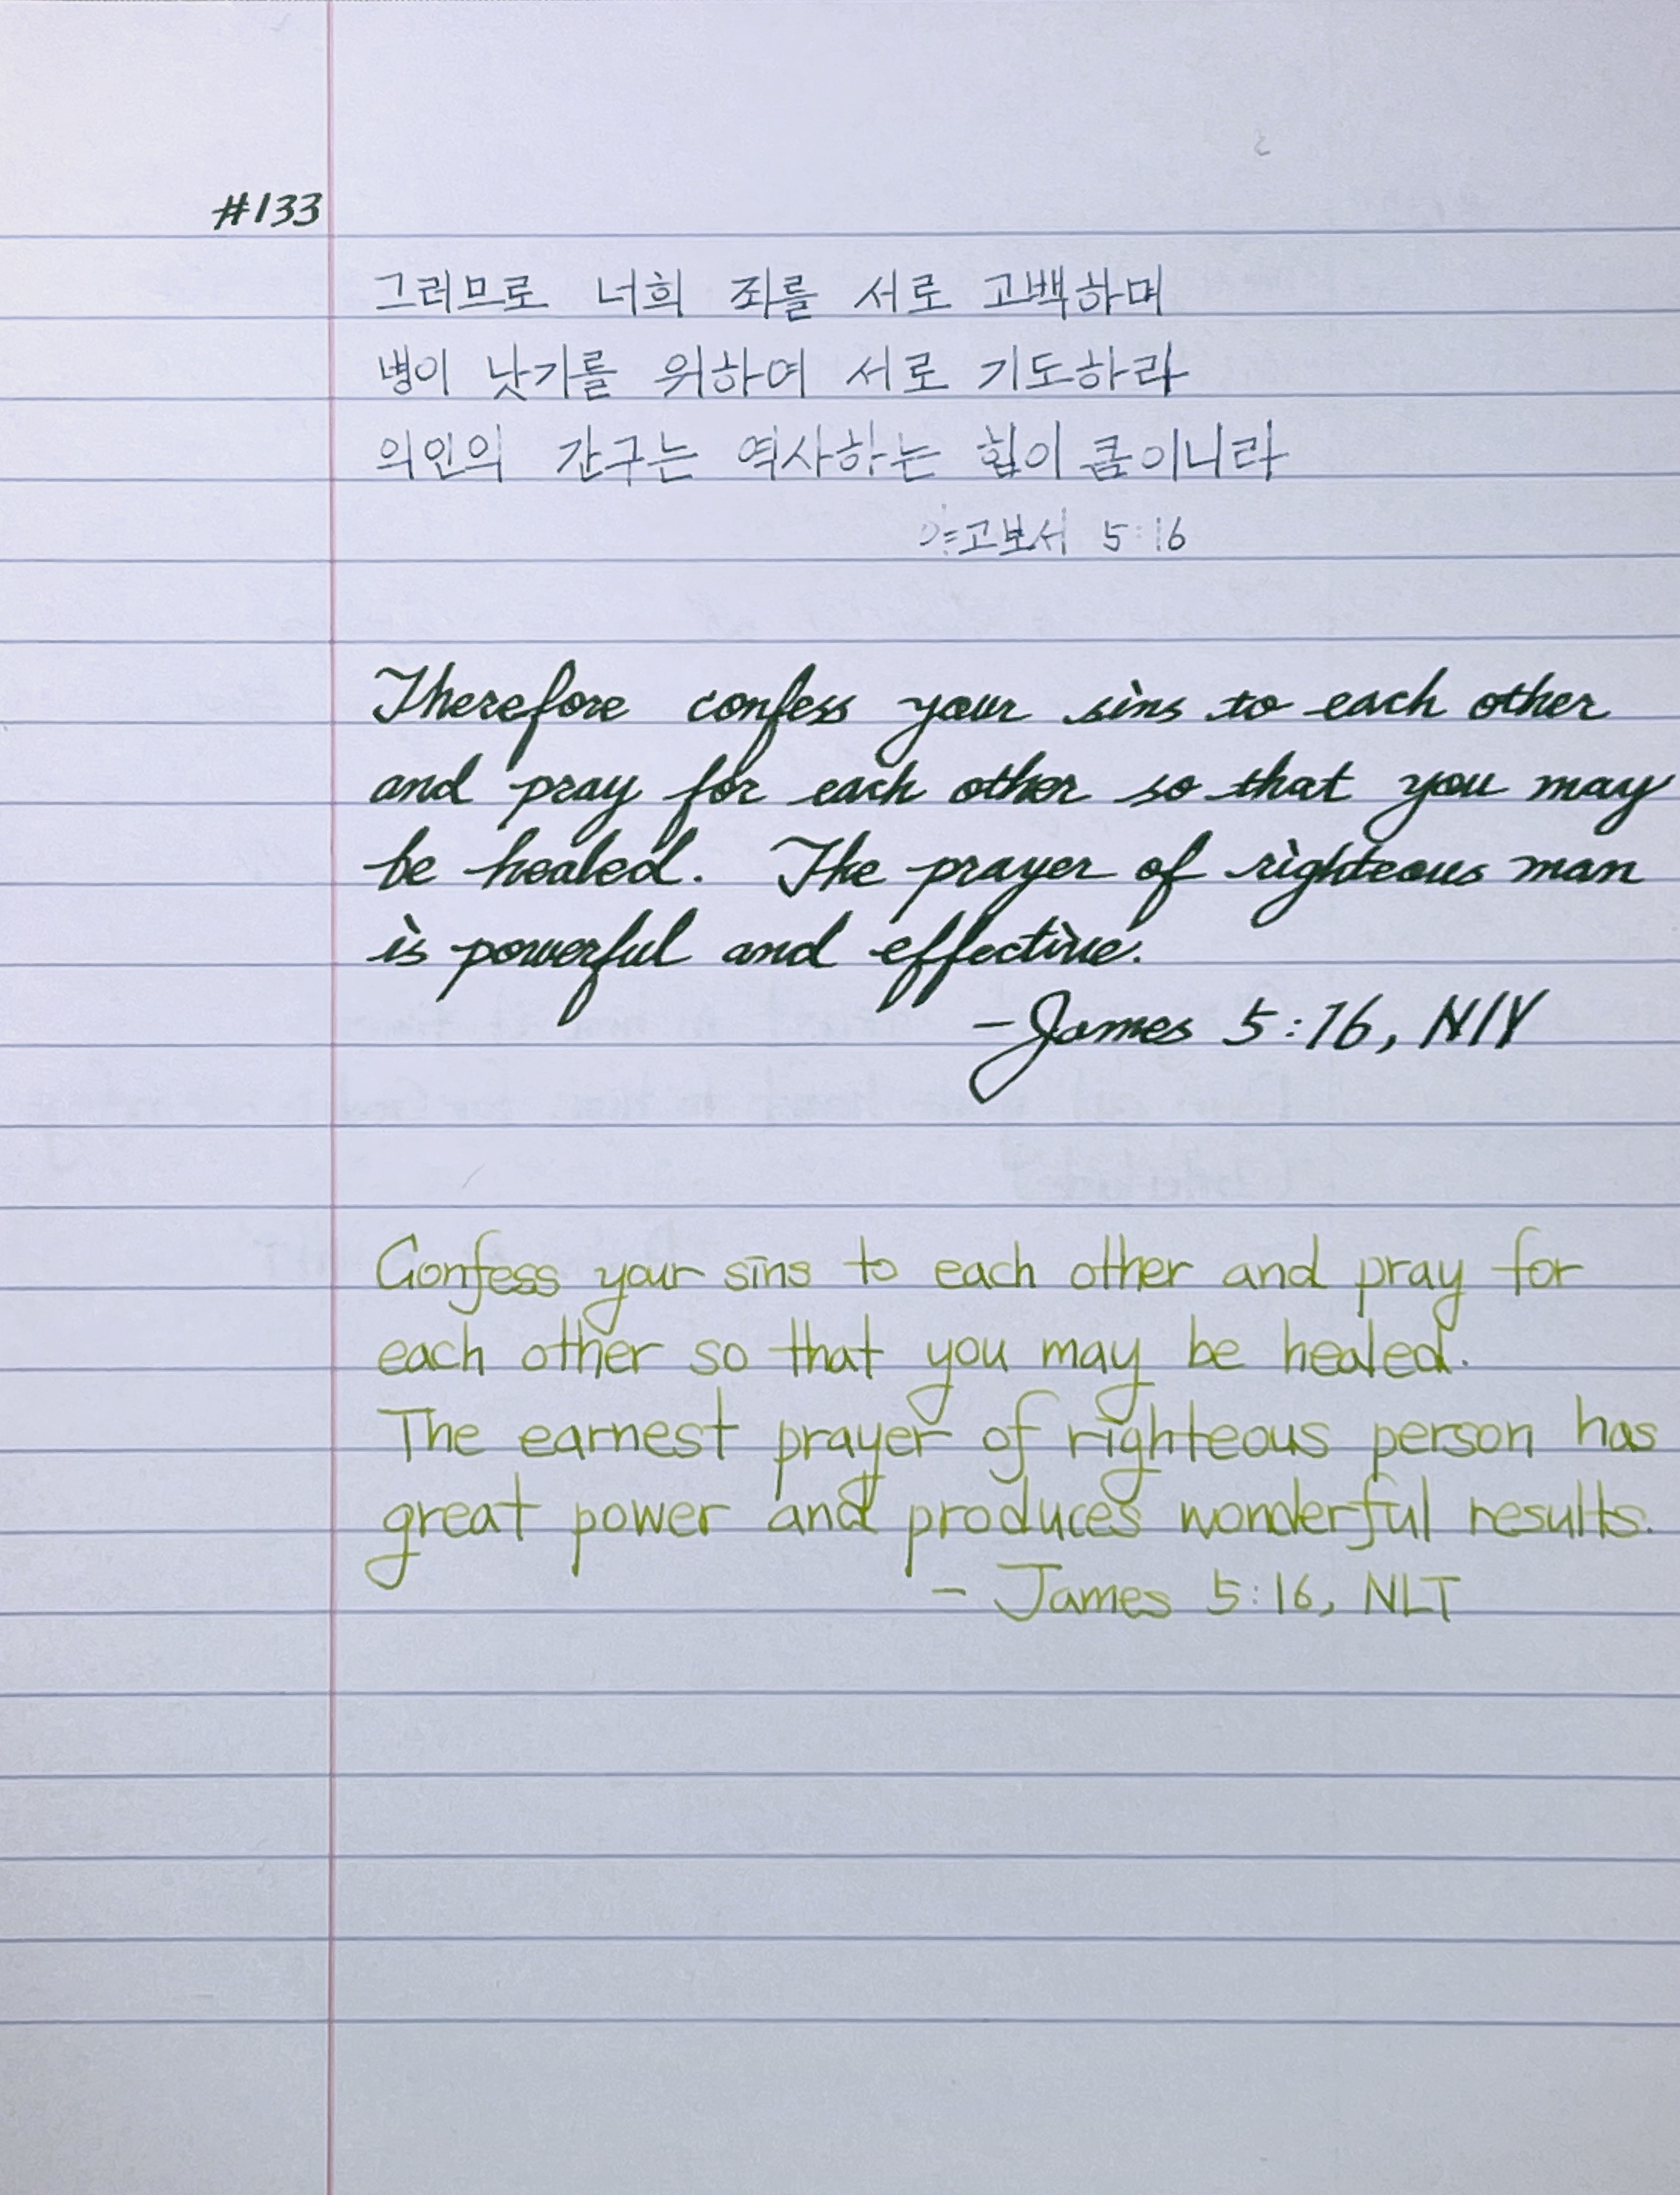 #133
그러므로 너희 죄를 서로 고백하며
병이 낫기를 위하여 서로 기도하라
의인의 간구는 역사하는 힘이 큼이니라
야고보서 5:16
Therefore confess your sins to each other
and pray for each other so that you may
be healed. The prayer of righteous man
is powerful and effective.
-James 5:16, NIV
Confess your sins to each other and pray for
each other so that you may be healed.
The earnest prayer of righteous person has
great power and produces wonderful results.
- James 5:16, NLT